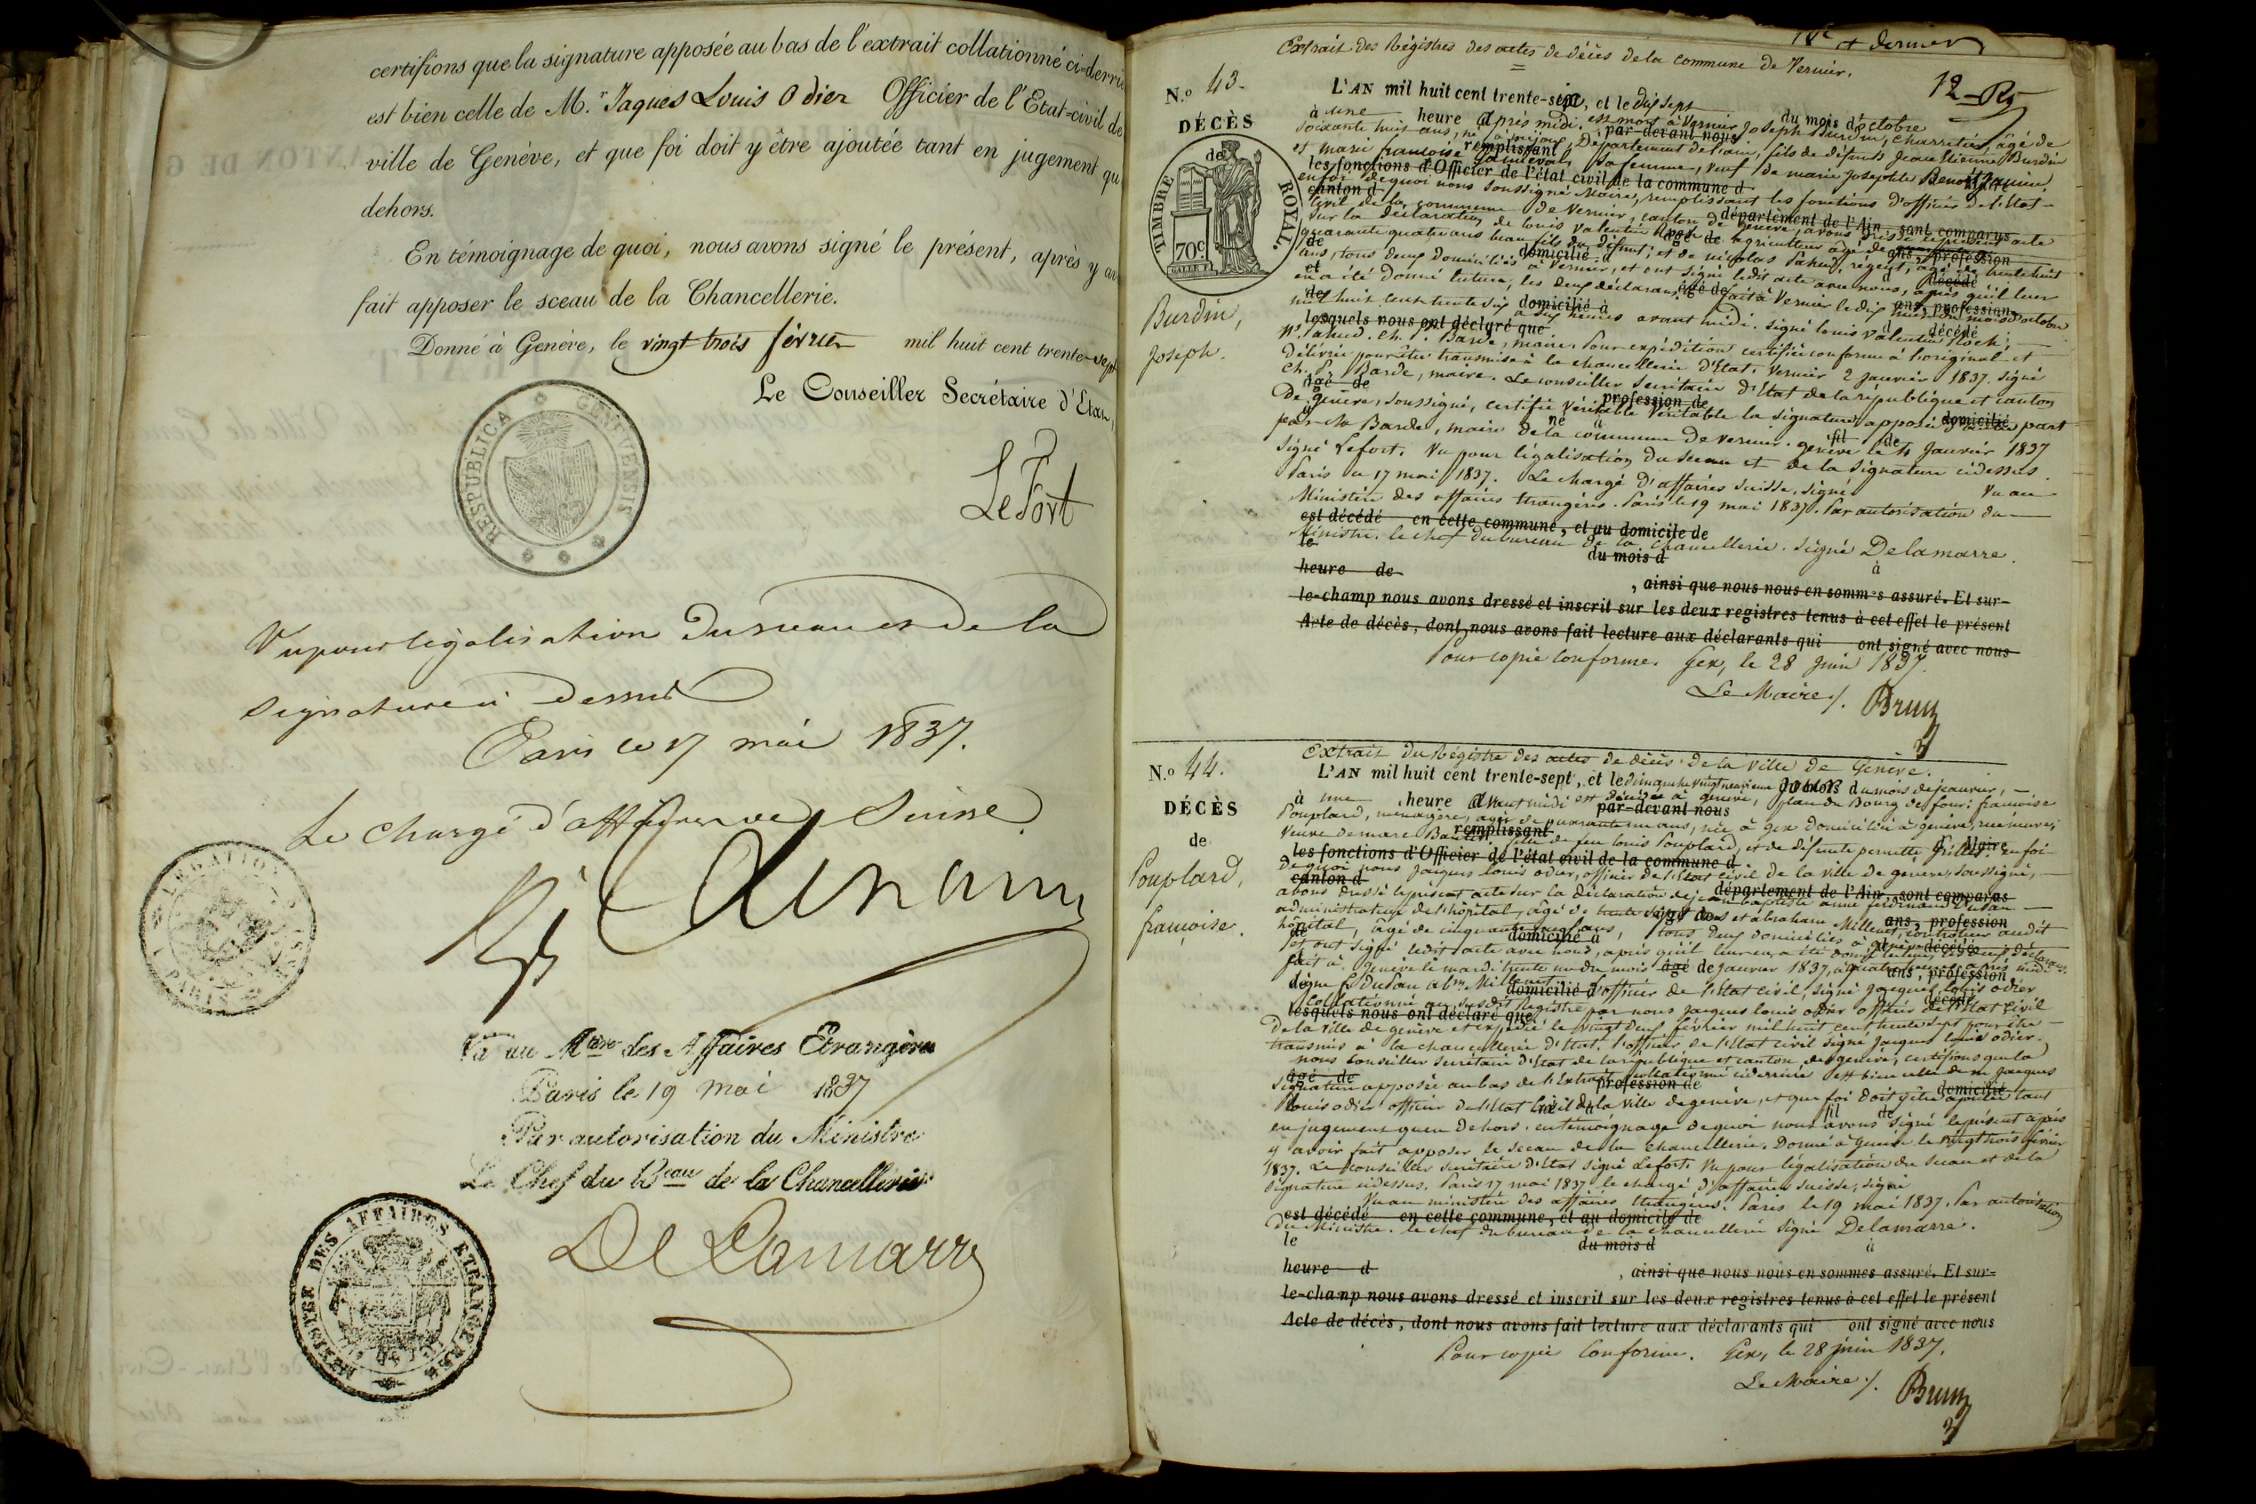 certifions que la signature apposée au bas de l'extrait collationné ci-derri
est bien celle de M.r Jaques Louis Odier Officier de l'Etat-civil de
ville de Genève, et que foi doit y être ajoutée tant en jugement qu
dehors.
En témoignage de quoi, nous avons signé le présent, après y av
fait apposer le sceau de la Chancellerie.
Donné à Genève, le vingt trois février mil huit cent trente-sept
Le Conseiller Secrétaire d'Etat,
RESPUBLICA GENEVENSIS
Le Fort
Vu pour légalisation du sceau et de la
signature ci dessus
Paris ce 17 mai 1837.
Le chargé d'affaires de Suisse
LEGATION SUISSE A PARIS
Vu au Mtère des Affaires Etrangères
Paris le 19 mai 1837
Par autorisation du Ministre
Le Chef du Beau de la Chancellerie
MINISTÈRE DES AFFAIRES ETRANGERES
De Lamarre
et dernier
12
Extrait des Régistres des actes de décès de la commune de Vernier.
N.o 43.
DÉCÈS
de
TIMBRE ROYAL.
70c.
Burdin,
Joseph.
L'AN mil huit cent trente-six, et le dix sept du mois d'octobre
à une heure après midi, est mort à Vernier Joseph Burdin, charretier, âgé de
par-devant nous
soixante huit ans, né à Département de l'ain, fils de défunts Jean Etienne Burdin
remplissant
et marie françoise sa femme, veuf de marie Josephte Benoit
les fonctions d'Officier de l'état civil de la commune d
en foi de quoi nous soussigné Maire, remplissant les fonctions d'officier de l'Etat-
canton d
civil de la commune de Vernier, canton de Genève, avons dressé le présent acte
département de l'Ain, sont comparus
sur la déclaration de louis Valentin agriculteur âgé de
âgé de ans, profession
quarante quatre ans beau fils du défunt, et de nicolas Pahud, régent, âgé de trente huit
de domicilié à
ans, tous deux domiciliés à Vernier, et ont signé ledit acte avec nous, après qu'il leur
et décédé
en a été donné lecture, les deux déclarans. fait à Vernier le dix huit du mois d'octobre
de âgé de ans, profession
mil huit cent trente six à six heures avant midi. signé louis Valentin
domicilié à
lesquels nous ont déclaré que décédé
Ns Pahud. Ch. P. Barde, maire. Pour expédition certifiée conforme à l'original et
délivrée pour être transmise à la chancellerie d'Etat. Vernier 2 janvier 1837. signé
Ch. P. Barde, maire. Le conseiller secrétaire d'Etat de la république et canton
âgé de profession de
De genève, soussigné, certifie véritable la signature apposée part
domicilié
par Mr Barde, maire de la commune de Vernier. genève le 4 Janvier 1837
né à fil de
signé Lefort. Vu pour légalisation du sceau et de la signature ci dessus.
Paris ce 17 mai 1837. Le chargé d'affaires suisse, signé Vu au
Ministère des affaires étrangères. Paris le 19 mai 1837. Par autorisation du
est décédé en cette commune, et au domicile de
Ministre. le chef du bureau de la chancellerie. signé Delamarre.
le du mois d à
heure de , ainsi que nous nous en sommes assuré. Et sur-
le-champ nous avons dressé et inscrit sur les deux registres tenus à cet effet le présent
Acte de décès, dont nous avons fait lecture aux déclarants qui ont signé avec nous
Pour copie conforme. Gex, le 28 juin 1837.
Le Maire/. Brun
Extrait du Régistre des actes de décès de la ville de Genève.
N.o 44.
DÉCÈS
de
Pouplard,
françoise.
L'AN mil huit cent trente-sept, et le dimanche vingt neuvième jour du mois de janvier,
à une heure avant midi est décédée à genève, place du Bourg de four: françoise
par-devant nous
Pouplard, ménagère, âgée de quarante un ans, née à gex domiciliée à genève
remplissant
veuve de marc fille de feu louis Pouplard, et de défunte pernette en foi
Maire
les fonctions d'Officier de l'état civil de la commune d
De quoi nous Jaques louis odier, officier de l'Etat civil de la ville de genève, soussigné,
canton d département de l'Ain, sont comparus
avons dressé le présent acte sur la déclaration de jean baptiste
administrateur de l'hôpital, âgé de et abraham Millenet, controleur audit
âgé de ans, profession
hôpital, âgé de cinquante ans, tous deux domiciliés à genève
de domicilié à décédé
et ont signé ledit acte avec nous, après qu'il leur en a été donné lecture, les deux déclarans
fait à Genève le mardi trente un du mois de janvier 1837, à quatre heures après midi.
âgé de ans, profession
signé Dusan abm Millenet. l'officier de l'Etat civil, signé Jacques louis odier
domicilié à
Collationné au susdit Régistre par nous Jaques louis odier officier de l'Etat civil
lesquels nous ont déclaré que décédé
De la ville de genève et expédié le vingt deux février mil huit cent trente sept pour être
transmis à la chancellerie d'Etat. l'officier de l'Etat civil signé Jaques louis odier.
nous conseiller secrétaire d'Etat de la république et canton de genève, certifions que la
âgé de profession de
signature apposée au bas de l'Extrait collationné ci derrière est bien celle de m. Jaques
domicilié
louis odier officier de l'Etat civil de la ville de genève, et que foi doit y être ajoutée tant
né à fil de
en jugement que dehors. en témoignage de quoi nous avons signé le présent après
y avoir fait apposer le sceau de la chancellerie. Donné à genève le vingt trois février
1837. Le conseiller secrétaire d'Etat signé Lefort. Vu pour légalisation du sceau et de la
signature ci dessus. Paris 17 mai 1837 le chargé d'affaires suisse, signé
Vu au ministère des affaires étrangères. Paris le 19 mai 1837. Par autorisation
est décédé en cette commune, et au domicile de
du Ministre. le chef du bureau de la chancellerie signé Delamarre.
le du mois d à
heure d , ainsi que nous nous en sommes assuré. Et sur-
le-champ nous avons dressé et inscrit sur les deux registres tenus à cet effet le présent
Acte de décès, dont nous avons fait lecture aux déclarants qui ont signé avec nous
Pour copie conforme. Gex, le 28 juin 1837.
Le Maire/. Brun